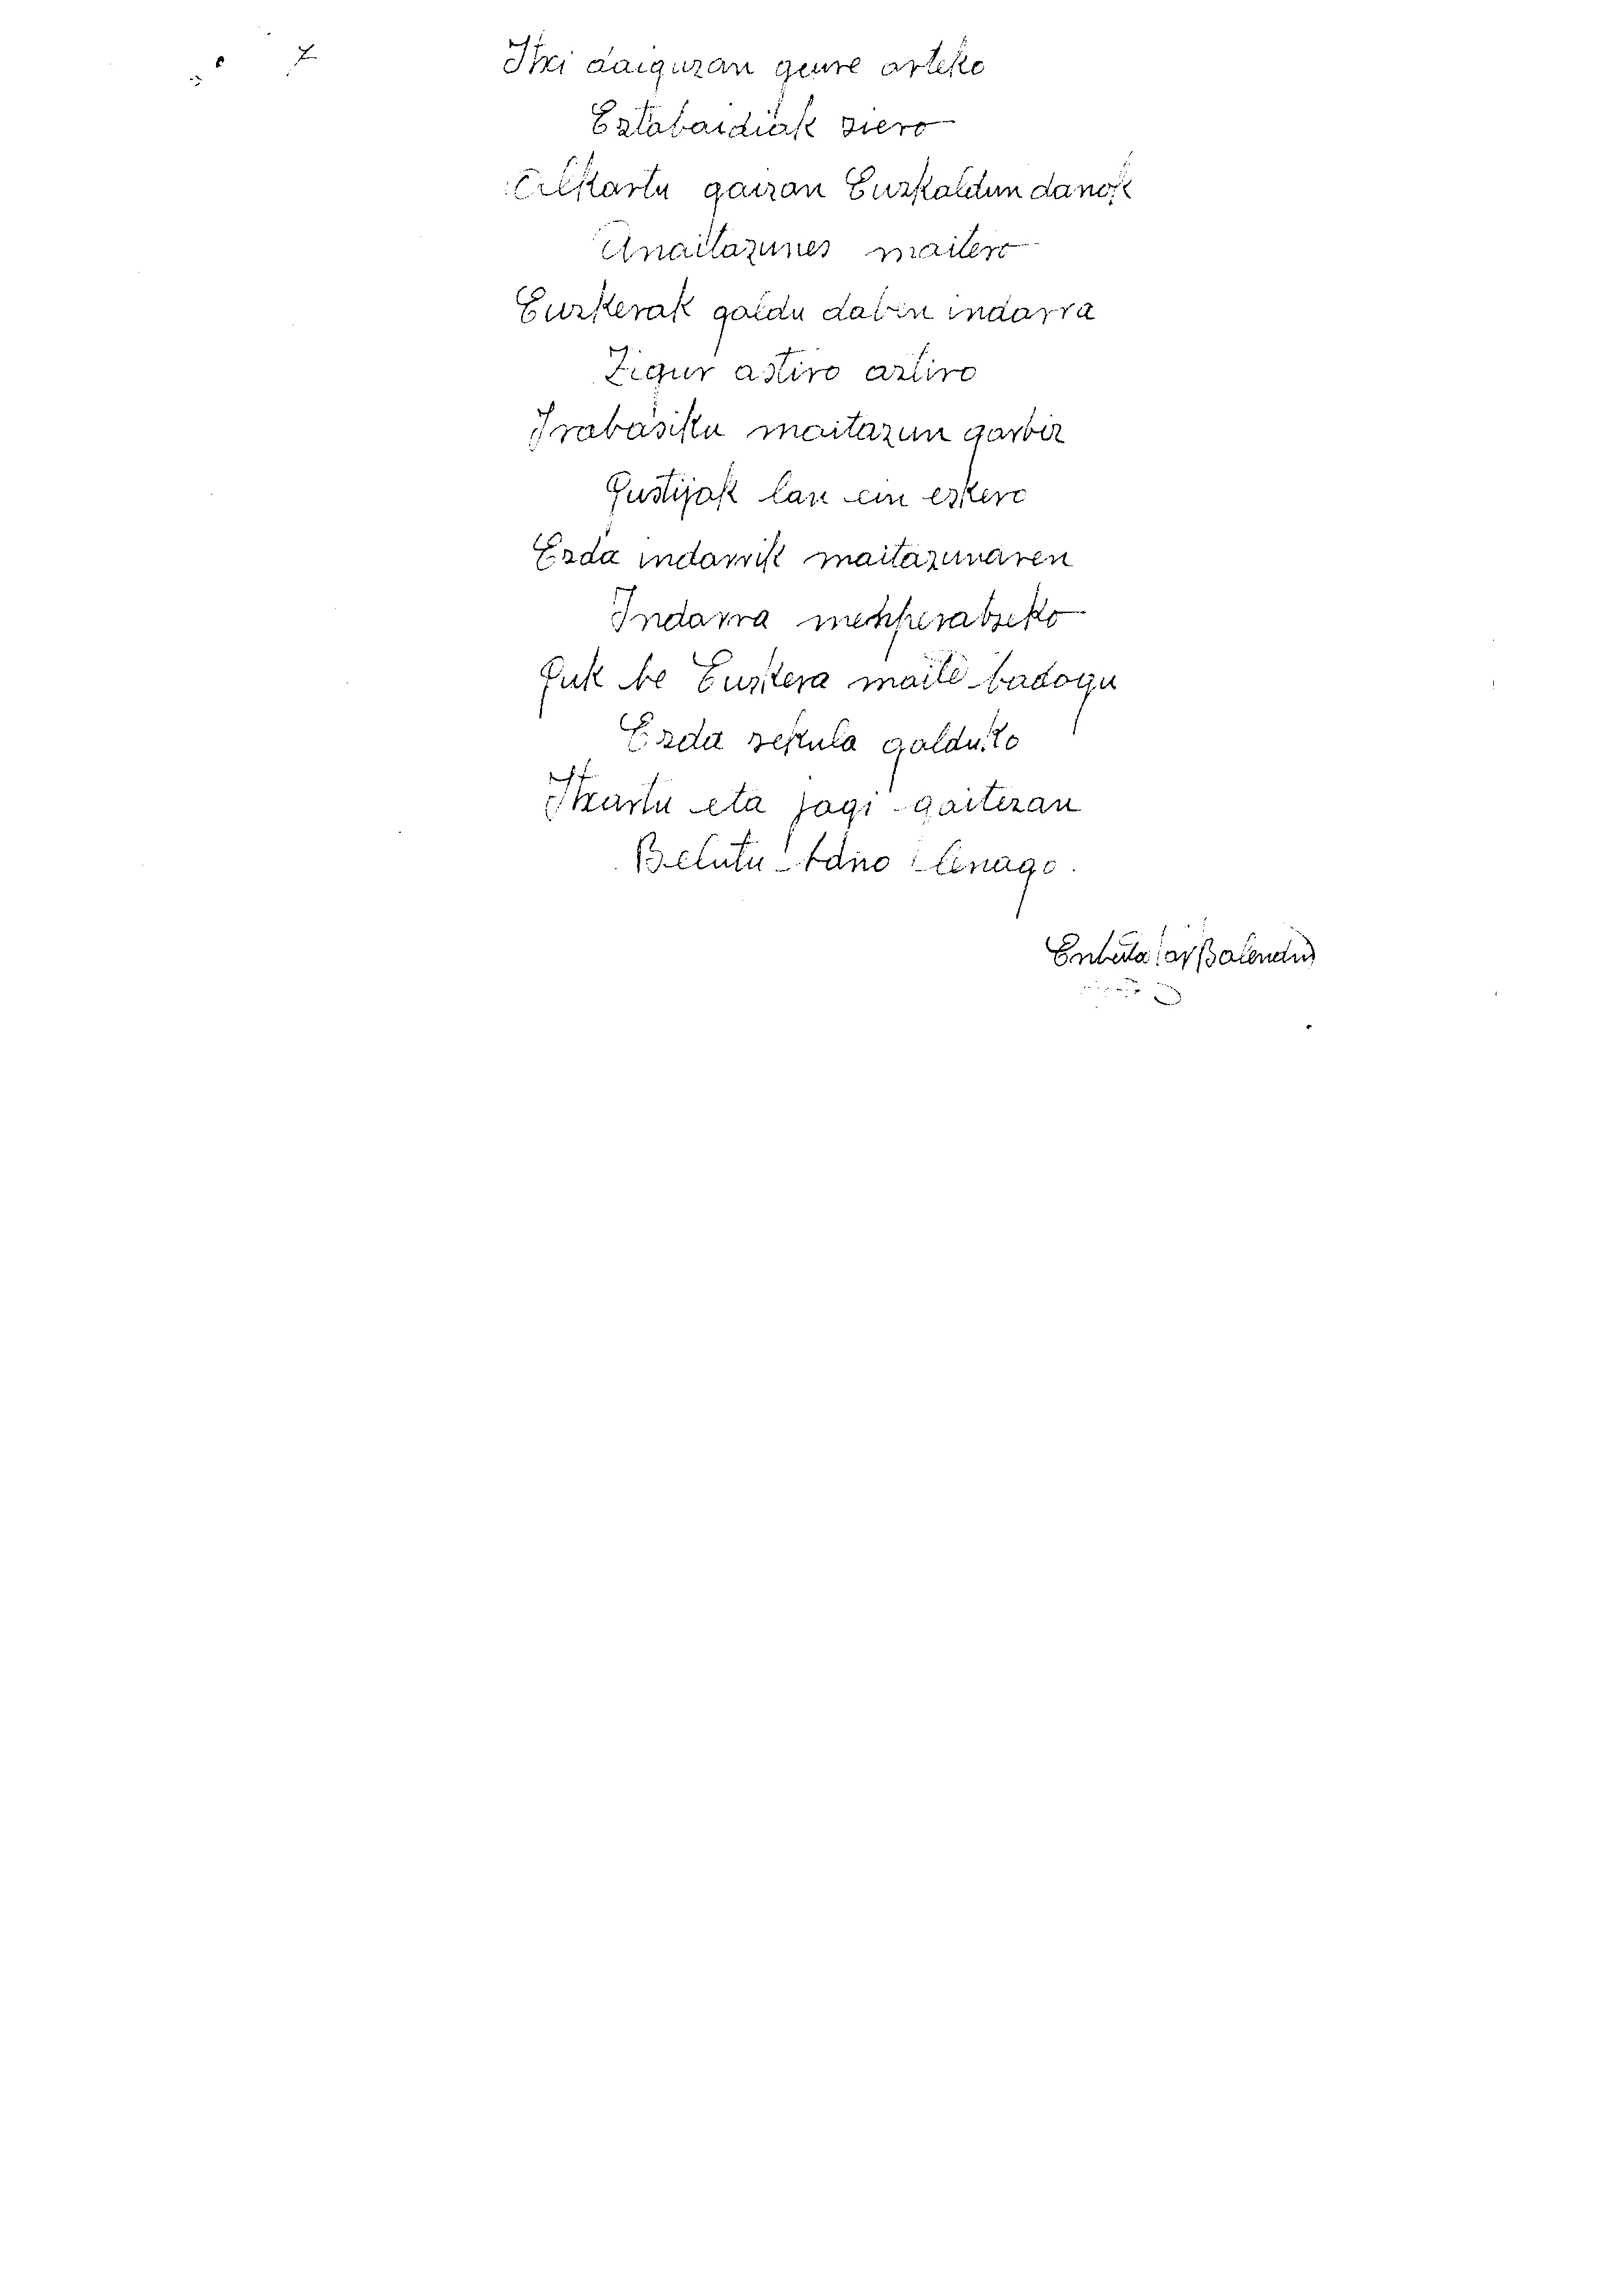 7
Itxi daiguzan geure arteko
Eztabaidiak ziero
Alkartu gaizan Euzkaldun danok
Anaitazunez maitero
Euzkerak galdu daben indarra
Zigur astiro astiro
Irabasiku maitazun garbiz
Gustijak lan ein ezkero
Ezda indarrik maitazunaren
Indarra menperatzeko
Guk be Euzkera maite badogu
Ezda sekula galduko
Itxartu eta jagi gaitezan
Belutu - lenago.
Enbeita'tar Balendin